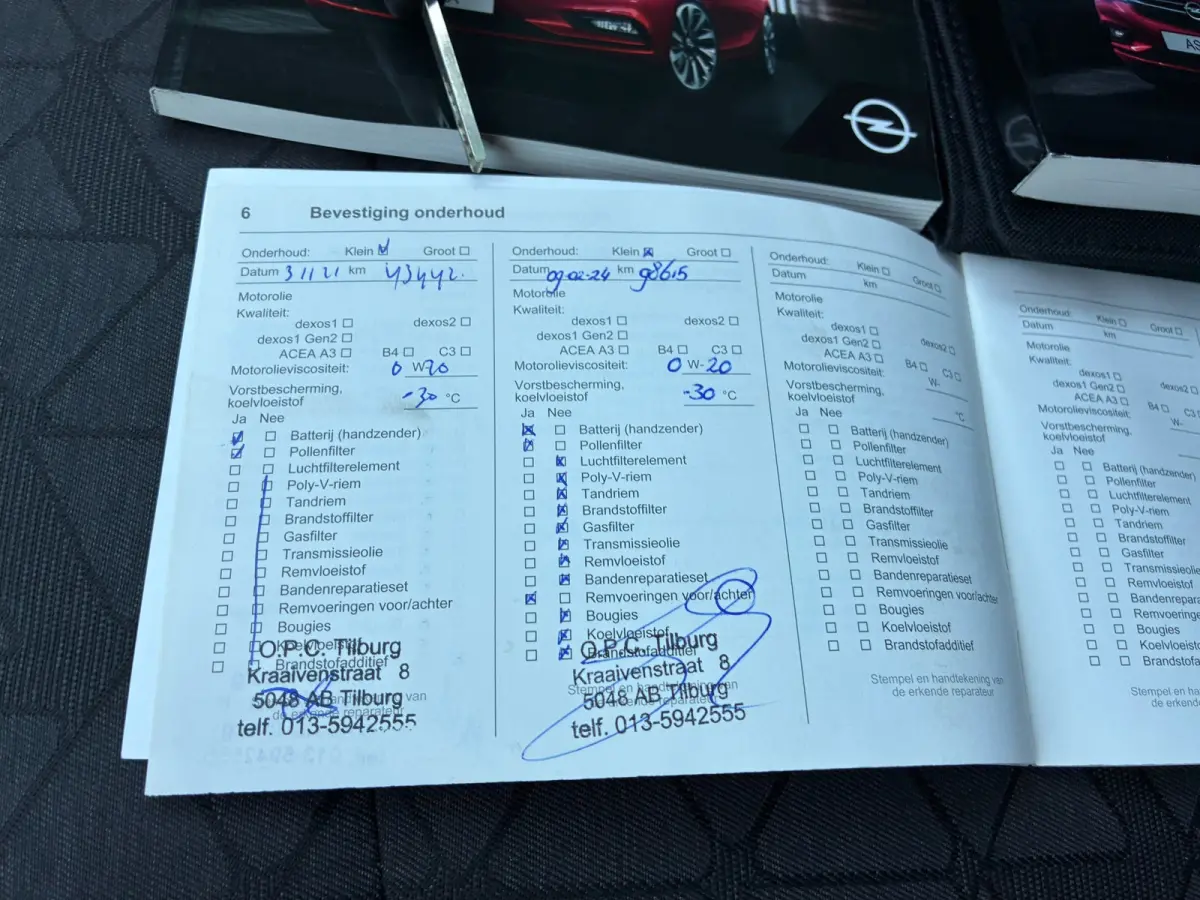 AS
6 Bevestiging onderhoud
Onderhoud: Klein ☑ Groot ☐
Datum 31121 km 43442.
Motorolie
Kwaliteit:
dexos1 ☐ dexos2 ☐
dexos1 Gen2 ☐
ACEA A3 ☐ B4 ☐ C3 ☐
Motorolieviscositeit: 0 W-20
Vorstbescherming,
koelvloeistof -30 °C
Ja Nee
Batterij (handzender)
Pollenfilter
Luchtfilterelement
Poly-V-riem
Tandriem
Brandstoffilter
Gasfilter
Transmissieolie
Remvloeistof
Bandenreparatieset
Remvoeringen voor/achter
Bougies
Koelvloeistof
Brandstofadditief
Stempel en handtekening van
de erkende reparateur
O.P.C. Tilburg
Kraaivenstraat 8
5048 AB Tilburg
telf. 013-5942555
Onderhoud: Klein ☒ Groot ☐
Datum 09-02-24 km 98615
Motorolie
Kwaliteit:
dexos1 ☐ dexos2 ☐
dexos1 Gen2 ☐
ACEA A3 ☐ B4 ☐ C3 ☐
Motorolieviscositeit: 0 W-20
Vorstbescherming,
koelvloeistof -30 °C
Ja Nee
Batterij (handzender)
Pollenfilter
Luchtfilterelement
Poly-V-riem
Tandriem
Brandstoffilter
Gasfilter
Transmissieolie
Remvloeistof
Bandenreparatieset
Remvoeringen voor/achter
Bougies
Koelvloeistof
Brandstofadditief
Stempel en handtekening van
de erkende reparateur
O.P.C. Tilburg
Kraaivenstraat 8
5048 AB Tilburg
telf. 013-5942555
Onderhoud: Klein ☐ Groot ☐
Datum km
Motorolie
Kwaliteit:
dexos1 ☐ dexos2 ☐
dexos1 Gen2 ☐
ACEA A3 ☐ B4 ☐ C3 ☐
Motorolieviscositeit: W-
Vorstbescherming,
koelvloeistof °C
Ja Nee
Batterij (handzender)
Pollenfilter
Luchtfilterelement
Poly-V-riem
Tandriem
Brandstoffilter
Gasfilter
Transmissieolie
Remvloeistof
Bandenreparatieset
Remvoeringen voor/achter
Bougies
Koelvloeistof
Brandstofadditief
Stempel en handtekening van
de erkende reparateur
Onderhoud: Klein ☐ Groot ☐
Datum km
Motorolie
Kwaliteit:
dexos1 ☐ dexos2
dexos1 Gen2 ☐
ACEA A3 ☐ B4 ☐ C3
Motorolieviscositeit: W-
Vorstbescherming,
koelvloeistof
Ja Nee
Batterij (handzender)
Pollenfilter
Luchtfilterelement
Poly-V-riem
Tandriem
Brandstoffilter
Gasfilter
Transmissieolie
Remvloeistof
Bandenrepara
Remvoeringe
Bougies
Koelvloeisto
Brandstofa
Stempel en han
de erkend